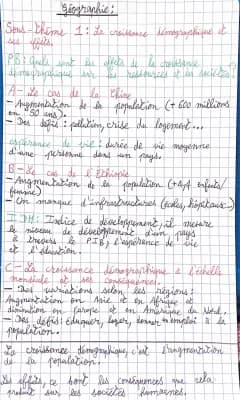 Géographie:
Sous-thème 1: La croissance démographique et
ses effets.
PB: Quels sont les effets de la croissance
démographique sur les ressources et les sociétés?
A- Le cas de la Chine
- Augmentation de la population (+600 millions
en 50 ans).
- Des défis: pollution, crise du logement...
espérance de vie: durée de vie moyenne
d'une personne dans un pays.
B- Le cas de l'Ethiopie
- Augmentation de la population (+4,4 enfants/
femme)
- Un manque d'infrastructures (écoles, hôpitaux...)
IDH: Indice de développement, il mesure
le niveau de développement d'un pays
à travers le PIB, l'espérance de vie
et l'éducation.
C- La croissance démographique à l'échelle
mondiale et ses conséquences
- Des variations selon les régions:
Augmentation en Asie et en Afrique et
diminution en Europe et en Amérique du Nord.
- Des défis: Eduquer, loger, donner un emploi à la
population.
La croissance démographique, c'est l'augmentation
de la population.
Les effets, ce sont les conséquences que cela
produit sur les sociétés humaines.